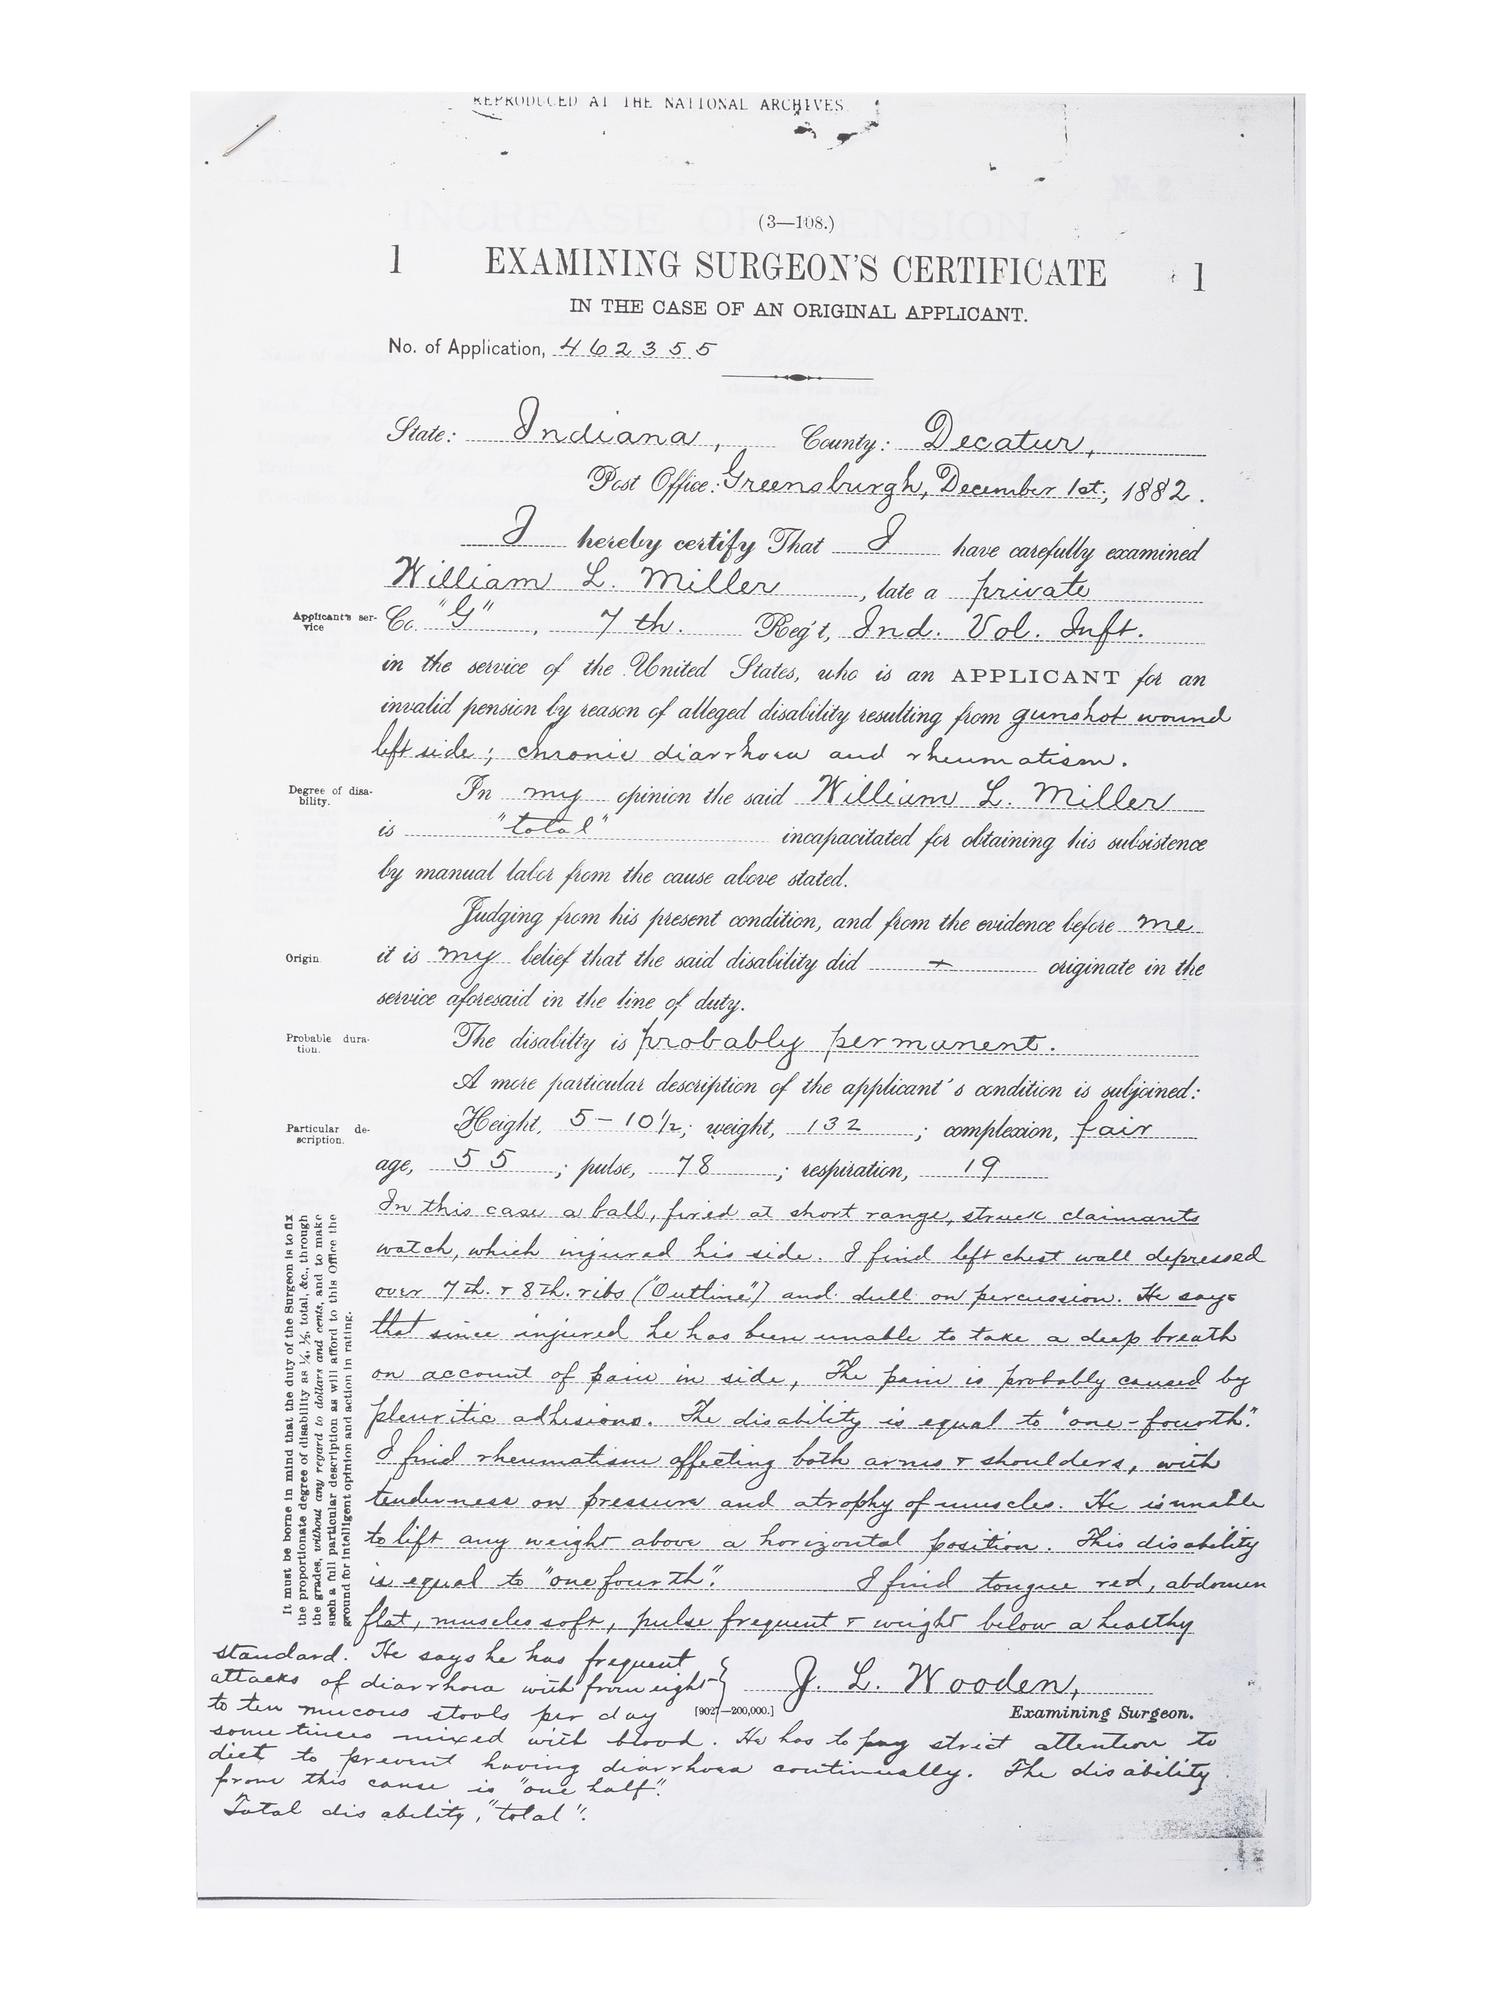 REPRODUCED AT THE NATIONAL ARCHIVES
(3—108.)
1 EXAMINING SURGEON'S CERTIFICATE 1
IN THE CASE OF AN ORIGINAL APPLICANT.
No. of Application, 462355
State: Indiana, County: Decatur,
Post Office: Greensburgh, December 1st, 1882.
I hereby certify That I have carefully examined
William L. Miller, late a private
Applicant's service
Co. "G", 7th. Reg't, Ind. Vol. Inft.
in the service of the United States, who is an APPLICANT for an
invalid pension by reason of alleged disability resulting from gunshot wound
left side; chronic diarrhoea and rheumatism.
Degree of disability.
In my opinion the said William L. Miller
is "total" incapacitated for obtaining his subsistence
by manual labor from the cause above stated.
Judging from his present condition, and from the evidence before me
Origin.
it is my belief that the said disability did + originate in the
service aforesaid in the line of duty.
Probable duration.
The disabilty is probably permanent.
A more particular description of the applicant's condition is subjoined:
Particular description.
Height, 5-10½; weight, 132; complexion, fair
age, 55; pulse, 78; respiration, 19
In this case a ball, fired at short range, struck claimants
watch, which injured his side. I find left chest wall depressed
over 7th. & 8th. ribs ("Outline") and dull on percussion. He says
that since injured he has been unable to take a deep breath
on account of pain in side, The pain is probably caused by
pleuritic adhesions. The disability is equal to "one-fourth".
I find rheumatism affecting both arms & shoulders, with
tenderness on pressure and atrophy of muscles. He is unable
to lift any weight above a horizontal position. This disability
is equal to "one fourth". I find tongue red, abdomen
flat, muscles soft, pulse frequent & weight below a healthy
standard. He says he has frequent
attacks of diarrhoea with from eight
to ten mucous stools per day
sometimes mixed with blood. He has to pay strict attention to
diet to prevent having diarrhoea continually. The disability
from this cause is "one half".
Total disability, "total".
J. L. Wooden,
[902—200,000.] Examining Surgeon.
It must be borne in mind that the duty of the Surgeon is to fix
the proportionate degree of disability as ¼, ½, total, &c., through
the grades, without any regard to dollars and cents, and to make
such a full particular description as will afford to this Office the
ground for intelligent opinion and action in rating.